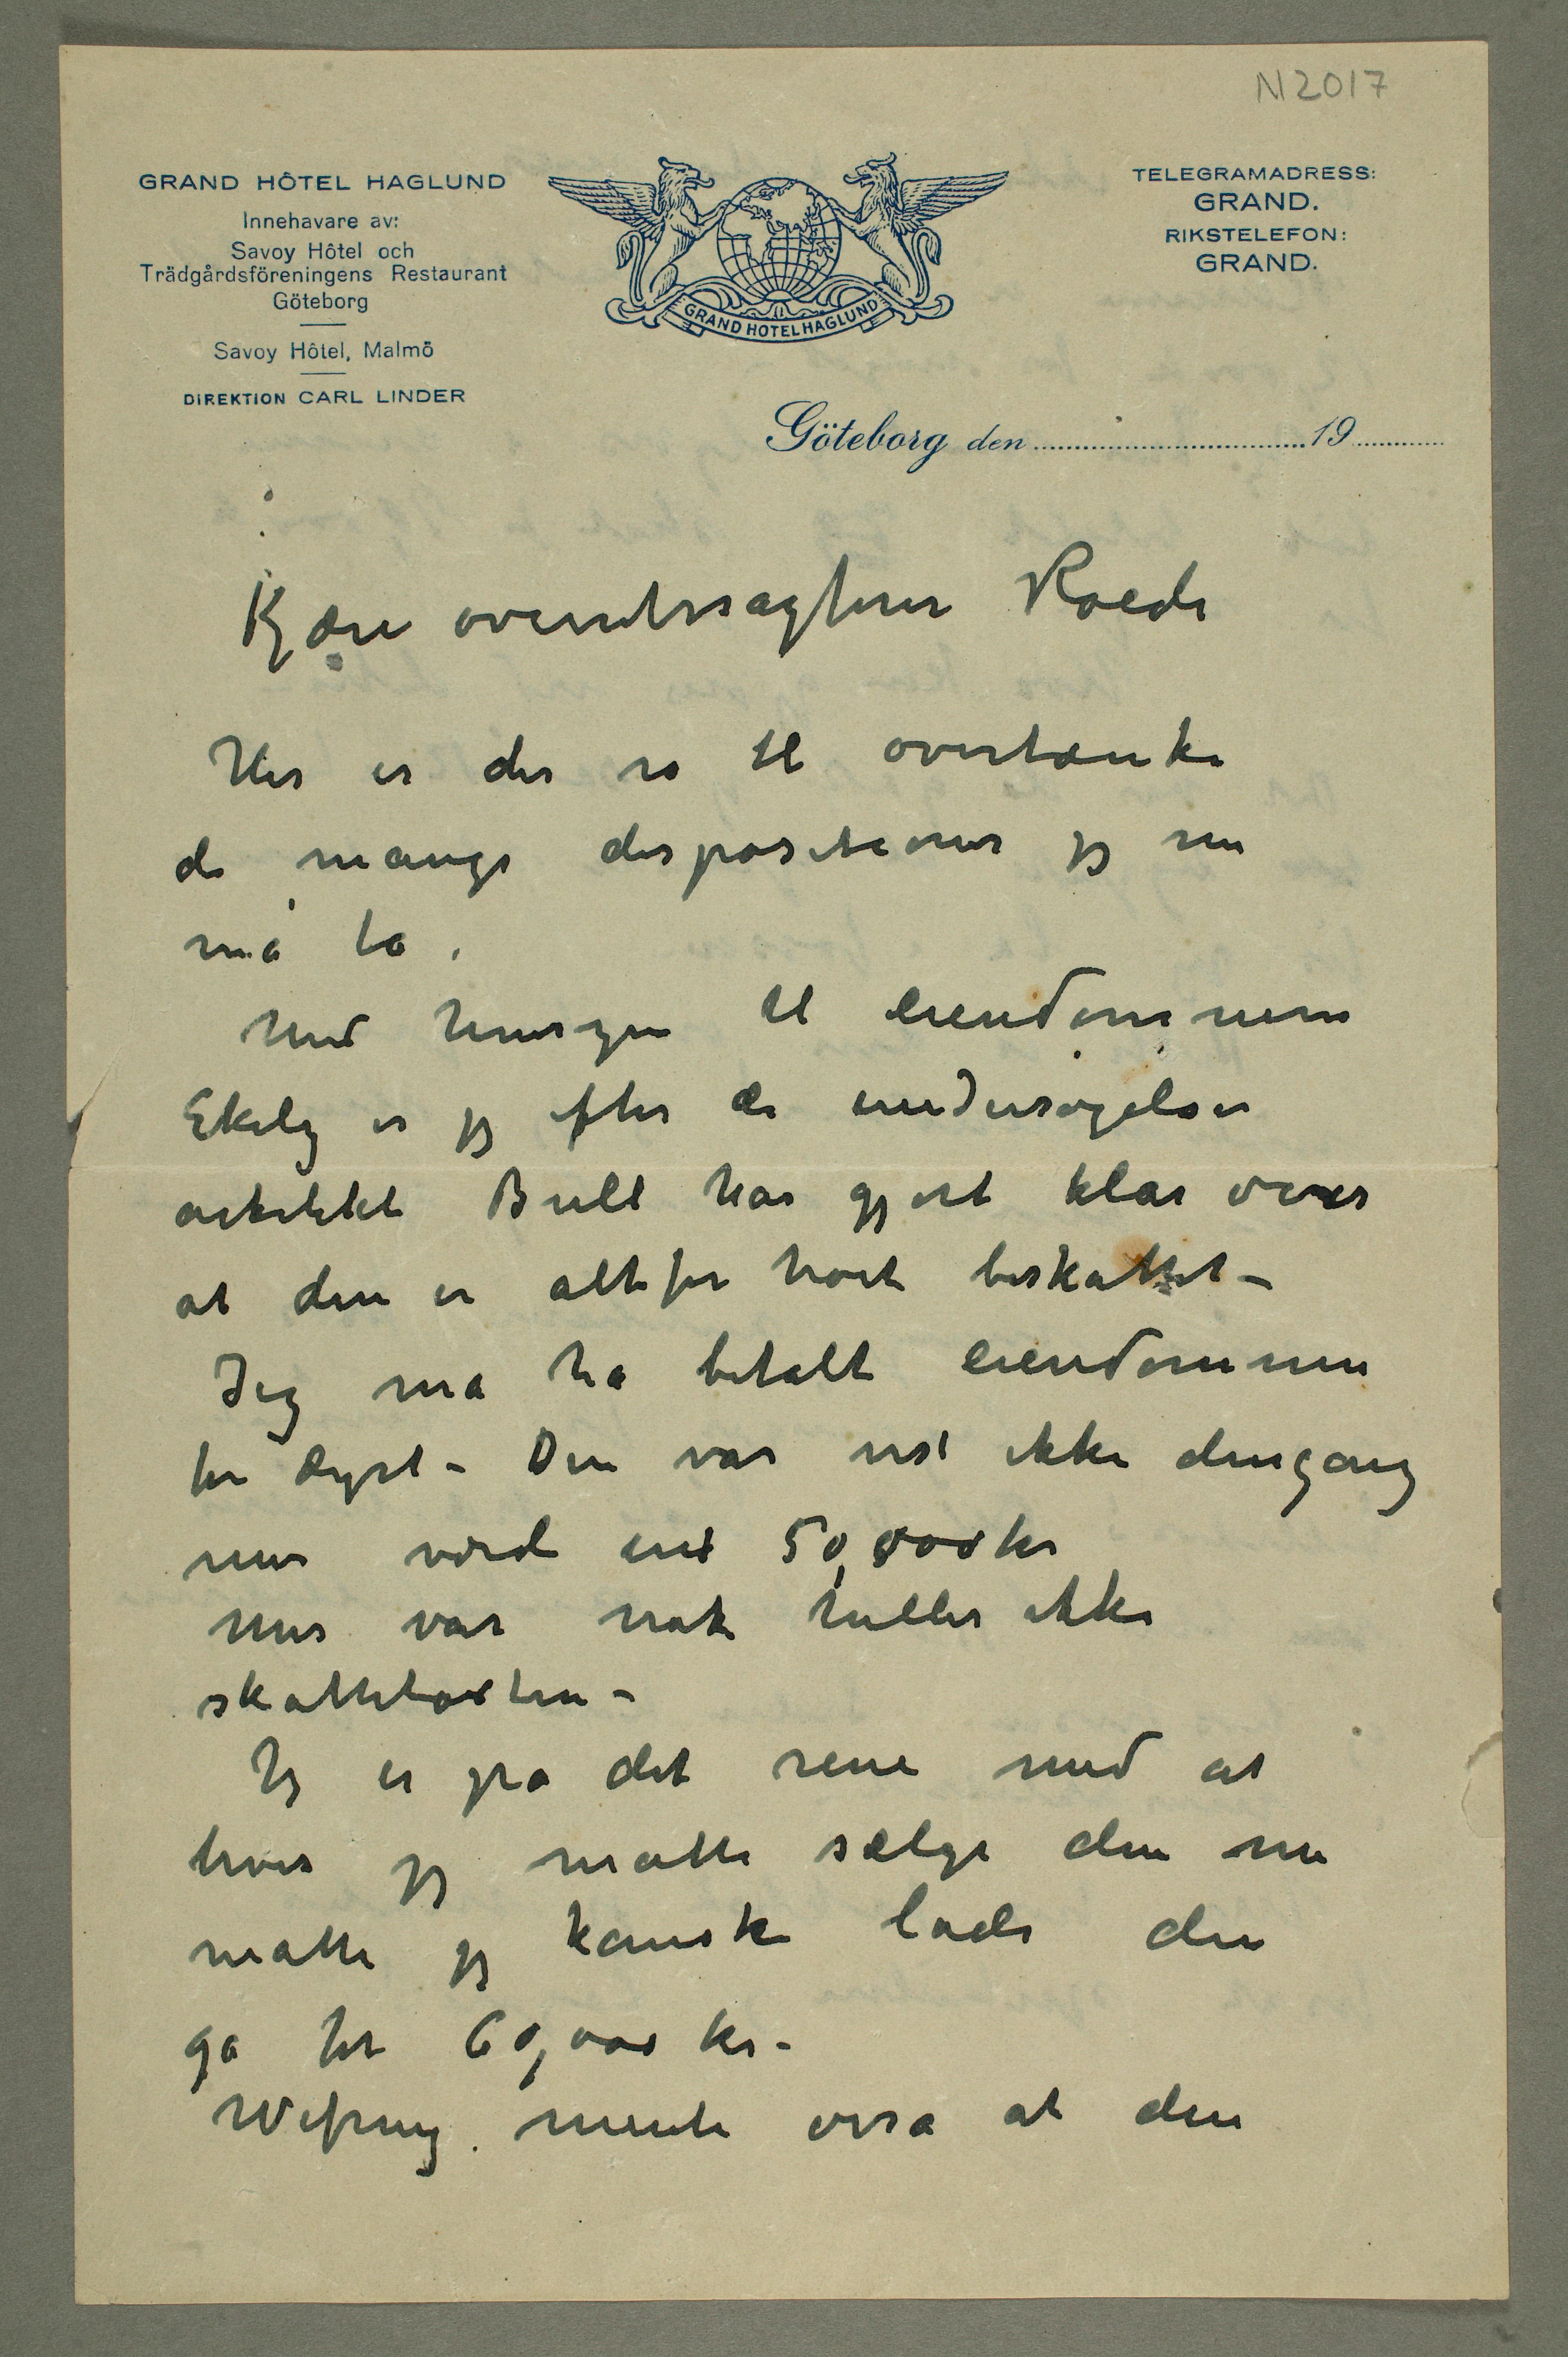 N2017
GRAND HÔTEL HAGLUND
Innehavare av:
Savoy Hôtel och
Trädgårdsföreningens Restaurant
Göteborg
Savoy Hôtel, Malmö
DIREKTION CARL LINDER
GRAND HOTEL HAGLUND
TELEGRAMADRESS:
GRAND.
RIKSTELEFON:
GRAND.
Göteborg den 19
Kjære overretssagfører Roede
Her er der ro til overtænke
de mange dispositioner jeg nu
må ta.
Med hensyn til eiendommen
Ekely er jeg efter de undersøgelser
arkitekt Bull har gjort klar over
at den er altfor høit beskattet –
Jeg må ha betalt eiendommen
for dyrt – Den var vist ikke dengang
mer værd end 50,000 kr
Mer var nok heller ikke
skattetaxten –
Jeg er på det rene med at
hvis jeg måtte sælge den nu
måtte jeg kanske lade den
gå for 60,000 kr –
Wefring mente osså at den